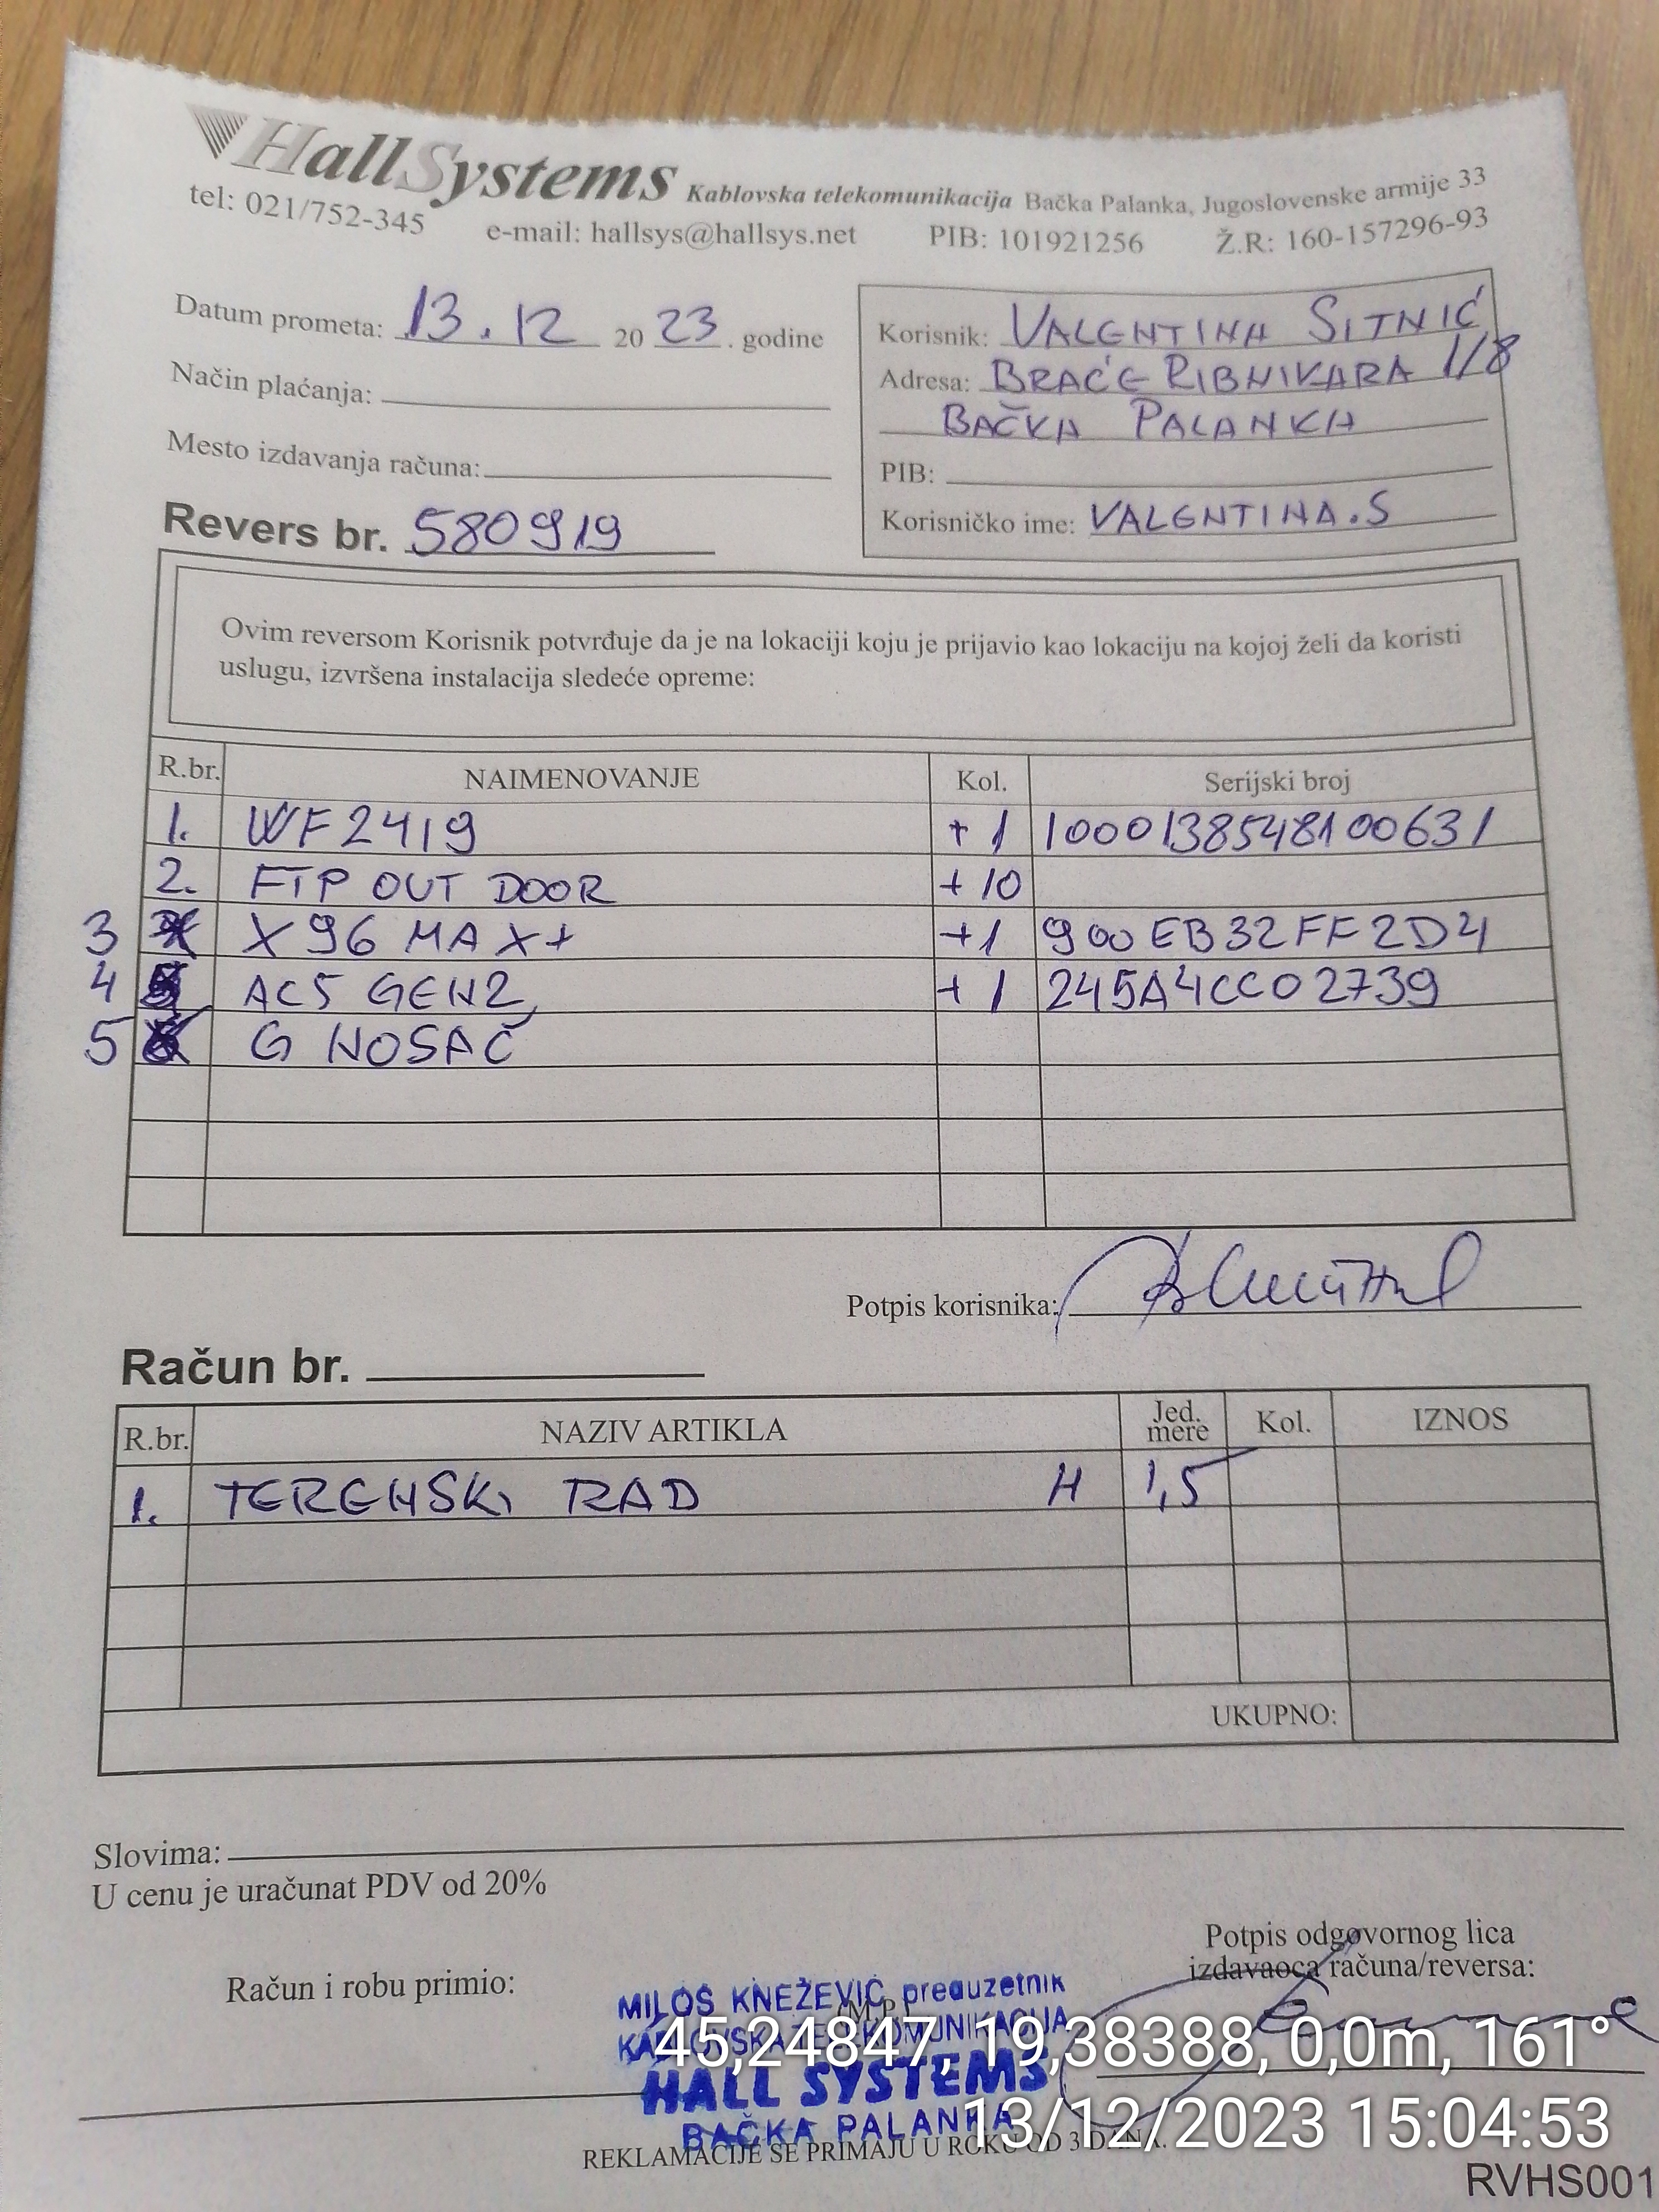 HallSystems Kablovska telekomunikacija Bačka Palanka, Jugoslovenske armije 33
tel: 021/752-345 e-mail: hallsys@hallsys.net PIB: 101921256 Ž.R: 160-157296-93
Datum prometa: 13.12 2023. godine
Način plaćanja:
Mesto izdavanja računa:
Korisnik: VALENTINA SITNIĆ
Adresa: BRAĆE RIBNIKARA 1/8
BAČKA PALANKA
PIB:
Korisničko ime: VALENTINA.S
Revers br. 580919
Ovim reversom Korisnik potvrđuje da je na lokaciji koju je prijavio kao lokaciju na kojoj želi da koristi
uslugu, izvršena instalacija sledeće opreme:
R.br. NAIMENOVANJE Kol. Serijski broj
1. WF2419 +1 1000138548100631
2. FTP OUT DOOR +10
3 X96 MAX+ +1 900EB32FF2D4
4 AC5 GEN2 +1 245A4CCO2739
5 G NOSAČ
Potpis korisnika:
Račun br.
R.br. NAZIV ARTIKLA Jed. mere Kol. IZNOS
1. TERENSKI RAD H 1,5
UKUPNO:
Slovima:
U cenu je uračunat PDV od 20%
Potpis odgovornog lica
izdavaoca računa/reversa:
Račun i robu primio:
(M.P.)
MILOŠ KNEŽEVIĆ preduzetnik
KABLOVSKA TELEKOMUNIKACIJA
HALL SYSTEMS
BAČKA PALANKA
REKLAMACIJE SE PRIMAJU U ROKU OD 3 DANA.
45,24847, 19,38388, 0,0m, 161°
13/12/2023 15:04:53
RVHS001